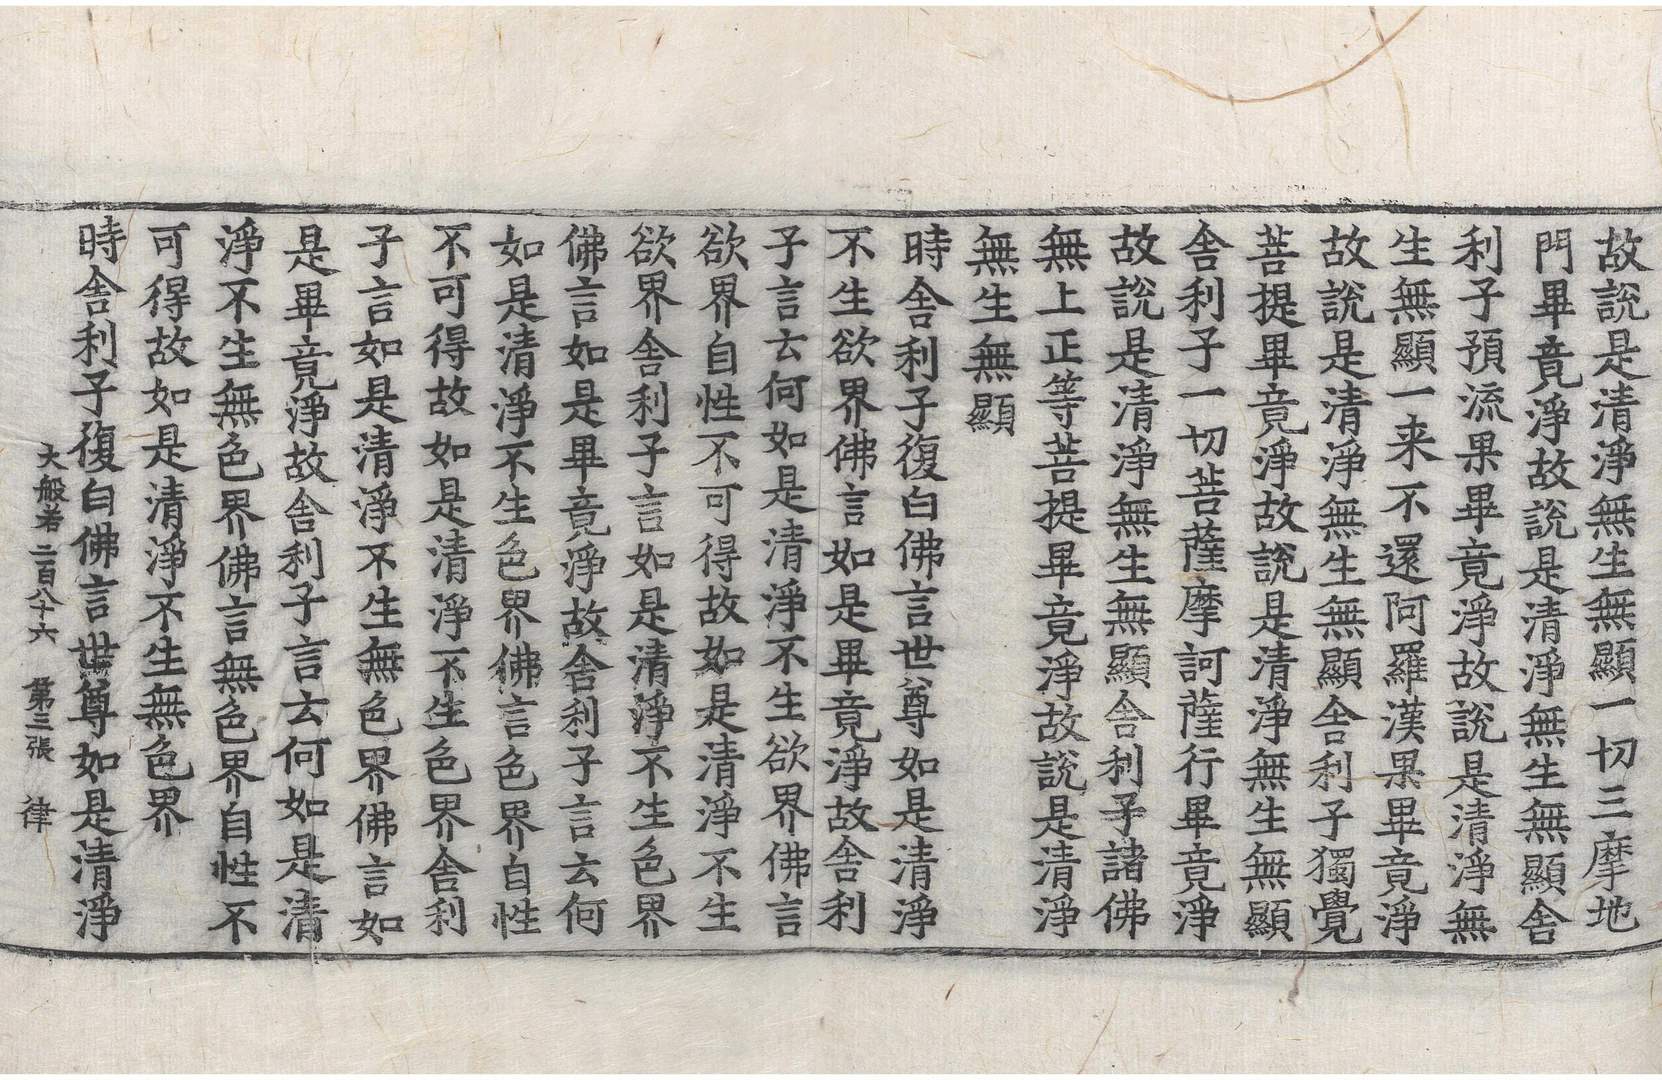 故說是清淨無生無顯一切三摩地
門畢竟淨故說是清淨無生無顯舍
利子預流果畢竟淨故說是清淨無
生無顯一来不還阿羅漢果畢竟淨
故說是清淨無生無顯舍利子獨覺
菩提畢竟淨故說是清淨無生無顯
舍利子一切菩薩摩訶薩行畢竟淨
故說是清淨無生無顯舍利子諸佛
無上正等菩提畢竟淨故說是清淨
無生無顯
時舍利子復白佛言世尊如是清淨
不生欲界佛言如是畢竟淨故舍利
子言云何如是清淨不生欲界佛言
欲界自性不可得故如是清淨不生
欲界舍利子言如是清淨不生色界
佛言如是畢竟淨故舍利子言云何
如是清淨不生色界佛言色界自性
不可得故如是清淨不生色界舍利
子言如是清淨不生無色界佛言如
是畢竟淨故舍利子言云何如是清
淨不生無色界佛言無色界自性不
可得故如是清淨不生無色界
時舍利子復白佛言世尊如是清淨
大般若二百八十六 第三張 律